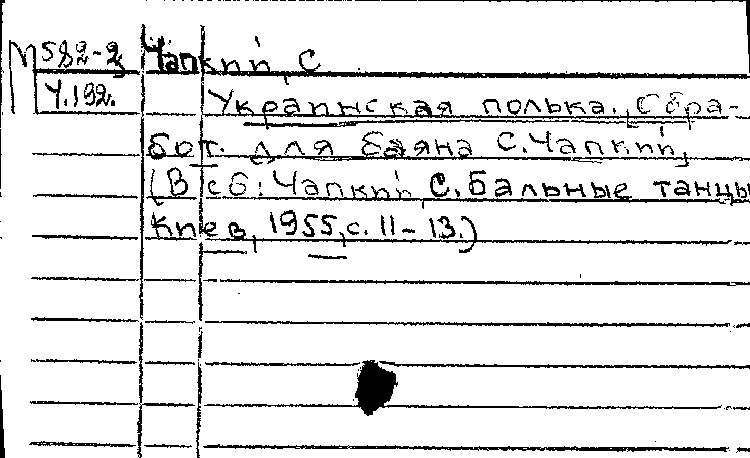 М582-2 Чапкий, С
Ч.192.
Украинская полька. Обра-
бот. для баяна С. Чапкий,
(В сб: Чапкий С. Бальные танцы
Киев, 1955, с. 11-13.)